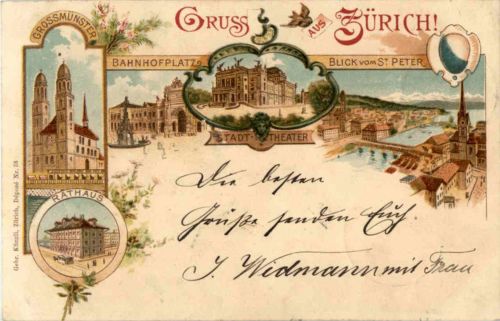 GRUSS AUS ZÜRICH!
GROSSMÜNSTER
BAHNHOFPLATZ
BLICK VOM ST PETER
STADT-THEATER
RATHAUS
Die besten
Grüße senden Euch.
J. Widmann mit Frau
Gebr. Künzli, Zürich, Déposé Nr. 78